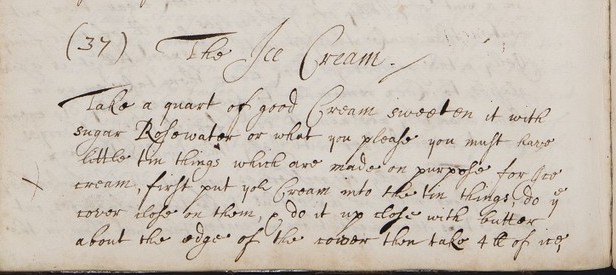 (37) The Ice Cream.
Take a quart of good Cream sweeten it with
sugar Rosewater or what you please you must have
little tin things which are made on purpose for Ice
cream, first put yoe Cream into the tin things, do ye
cover close on them, do it up close with butter
about the edge of the cover then take 4 lb of ice,